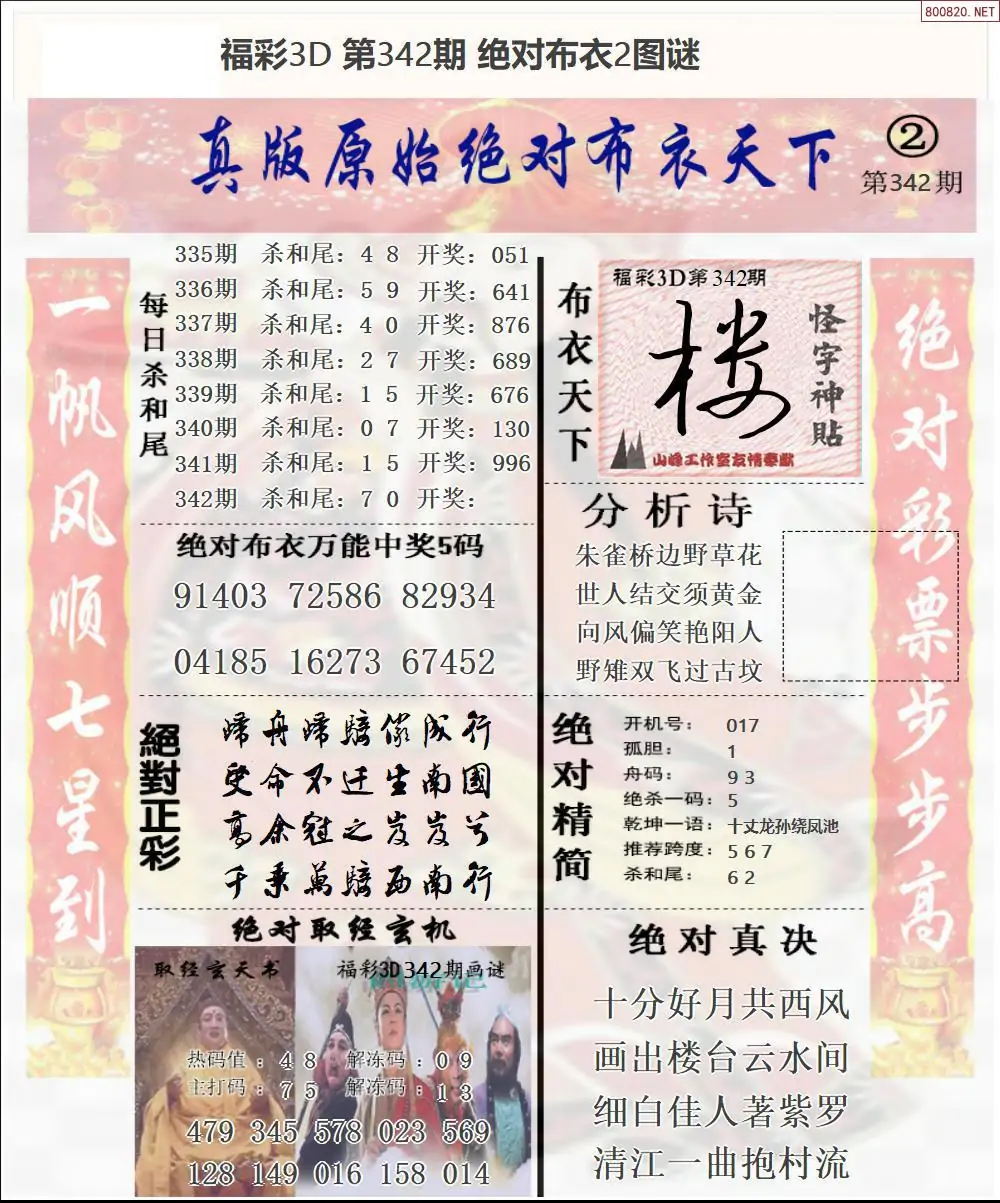 800820.NET
福彩3D 第342期 绝对布衣2图谜
真版原始绝对布衣天下
②
第342期
一帆风顺七星到
每日杀和尾
335期 杀和尾：4 8 开奖：051
336期 杀和尾：5 9 开奖：641
337期 杀和尾：4 0 开奖：876
338期 杀和尾：2 7 开奖：689
339期 杀和尾：1 5 开奖：676
340期 杀和尾：0 7 开奖：130
341期 杀和尾：1 5 开奖：996
342期 杀和尾：7 0 开奖：
绝对布衣万能中奖5码
91403 72586 82934
04185 16273 67452
絕對正彩
受命不迁生南國
高余冠之岌岌兮
千乘萬騎西南行
绝对取经玄机
取经玄天书
福彩3D342期画谜
热码值：4 8 解冻码：0 9
主打码：7 5 解冻码：1 3
479 345 578 023 569
128 149 016 158 014
布衣天下
福彩3D第342期
楼
怪字神貼
山峰工作室友情奉献
分析诗
朱雀桥边野草花
世人结交须黄金
向风偏笑艳阳人
野雉双飞过古坟
绝对精简
开机号：017
孤胆：1
舟码：9 3
绝杀一码：5
乾坤一语：十丈龙孙绕凤池
推荐跨度：5 6 7
杀和尾：6 2
绝对真决
十分好月共西风
画出楼台云水间
细白佳人著紫罗
清江一曲抱村流
绝对彩票步步高